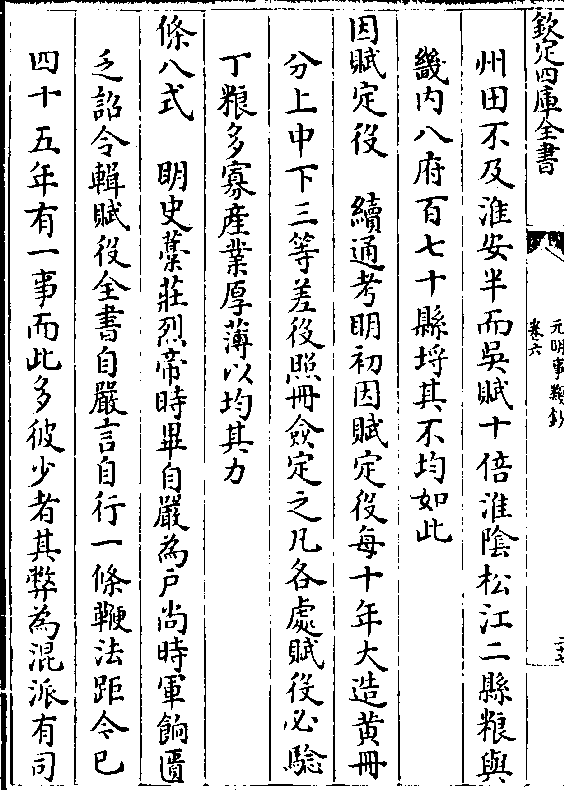 欽定四庫全書
元明事類鈔
卷六
二七
州田不及淮安半而吳賦十倍淮陰松江二縣粮與
畿内八府百七十縣埒其不均如此
因賦定役　續通考明初因賦定役每十年大造黄冊
分上中下三等差役照冊僉定之凡各處賦役必驗
丁粮多寡產業厚薄以均其力
條八式　明史藁莊烈帝時畢自嚴為户尚時軍餉匱
乏詔令輯賦役全書自嚴言自行一條鞭法距今已
四十五年有一事而此多彼少者其弊為混派有司